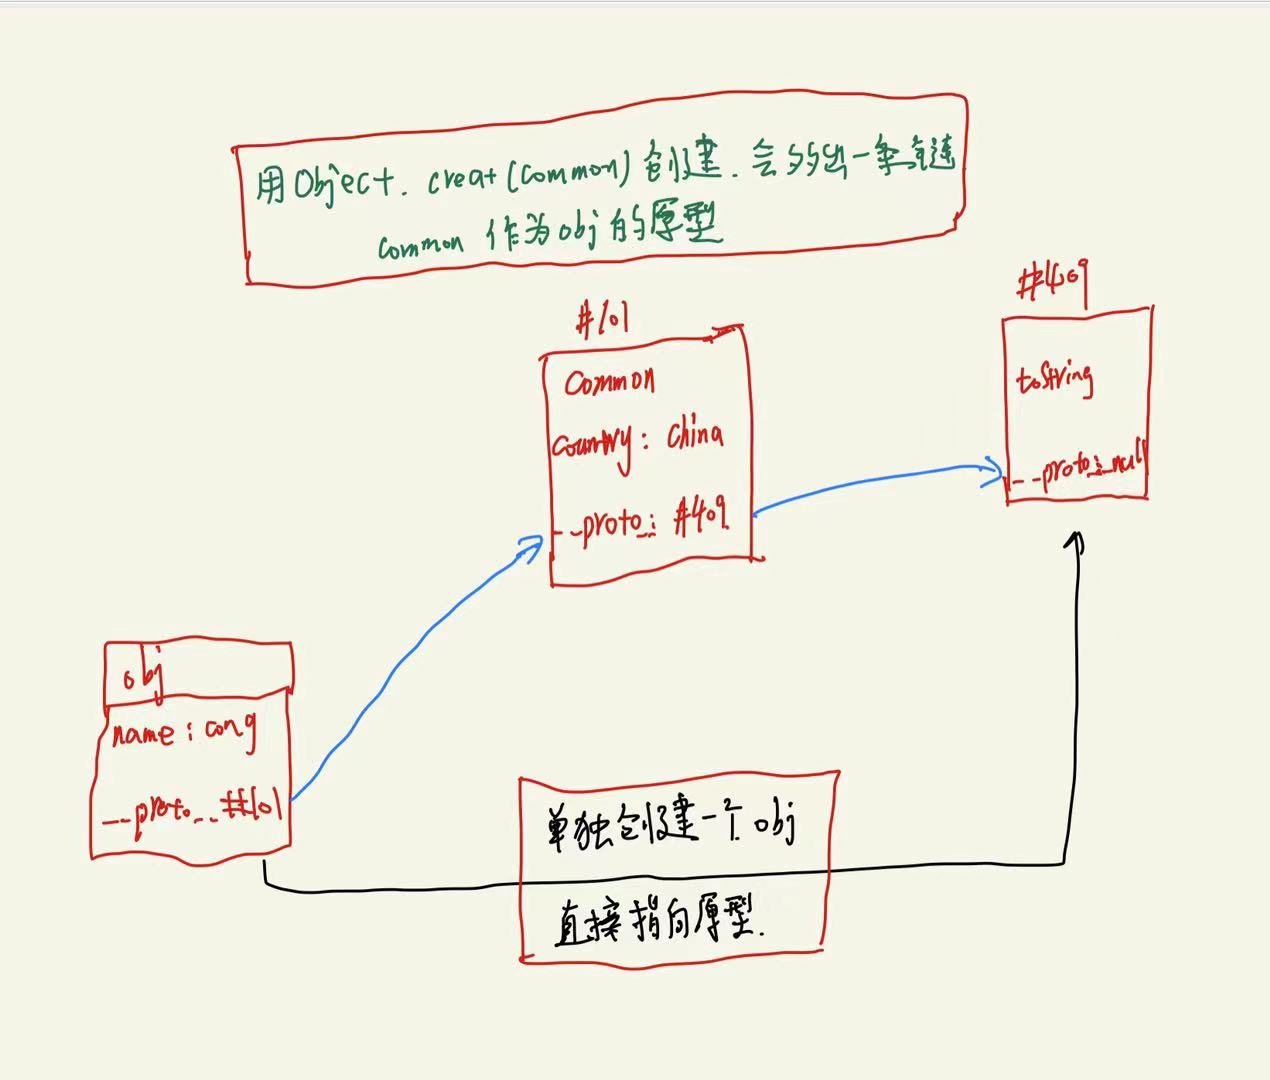 用Object. creat(Common)创建.会多出一条链
common 作为obj的原型
#101
Common
country: China
--proto_: #409
#409
toString
--proto_:_null
obj
name: cong
__proto__#101
单独创建一个obj
直接指向原型.